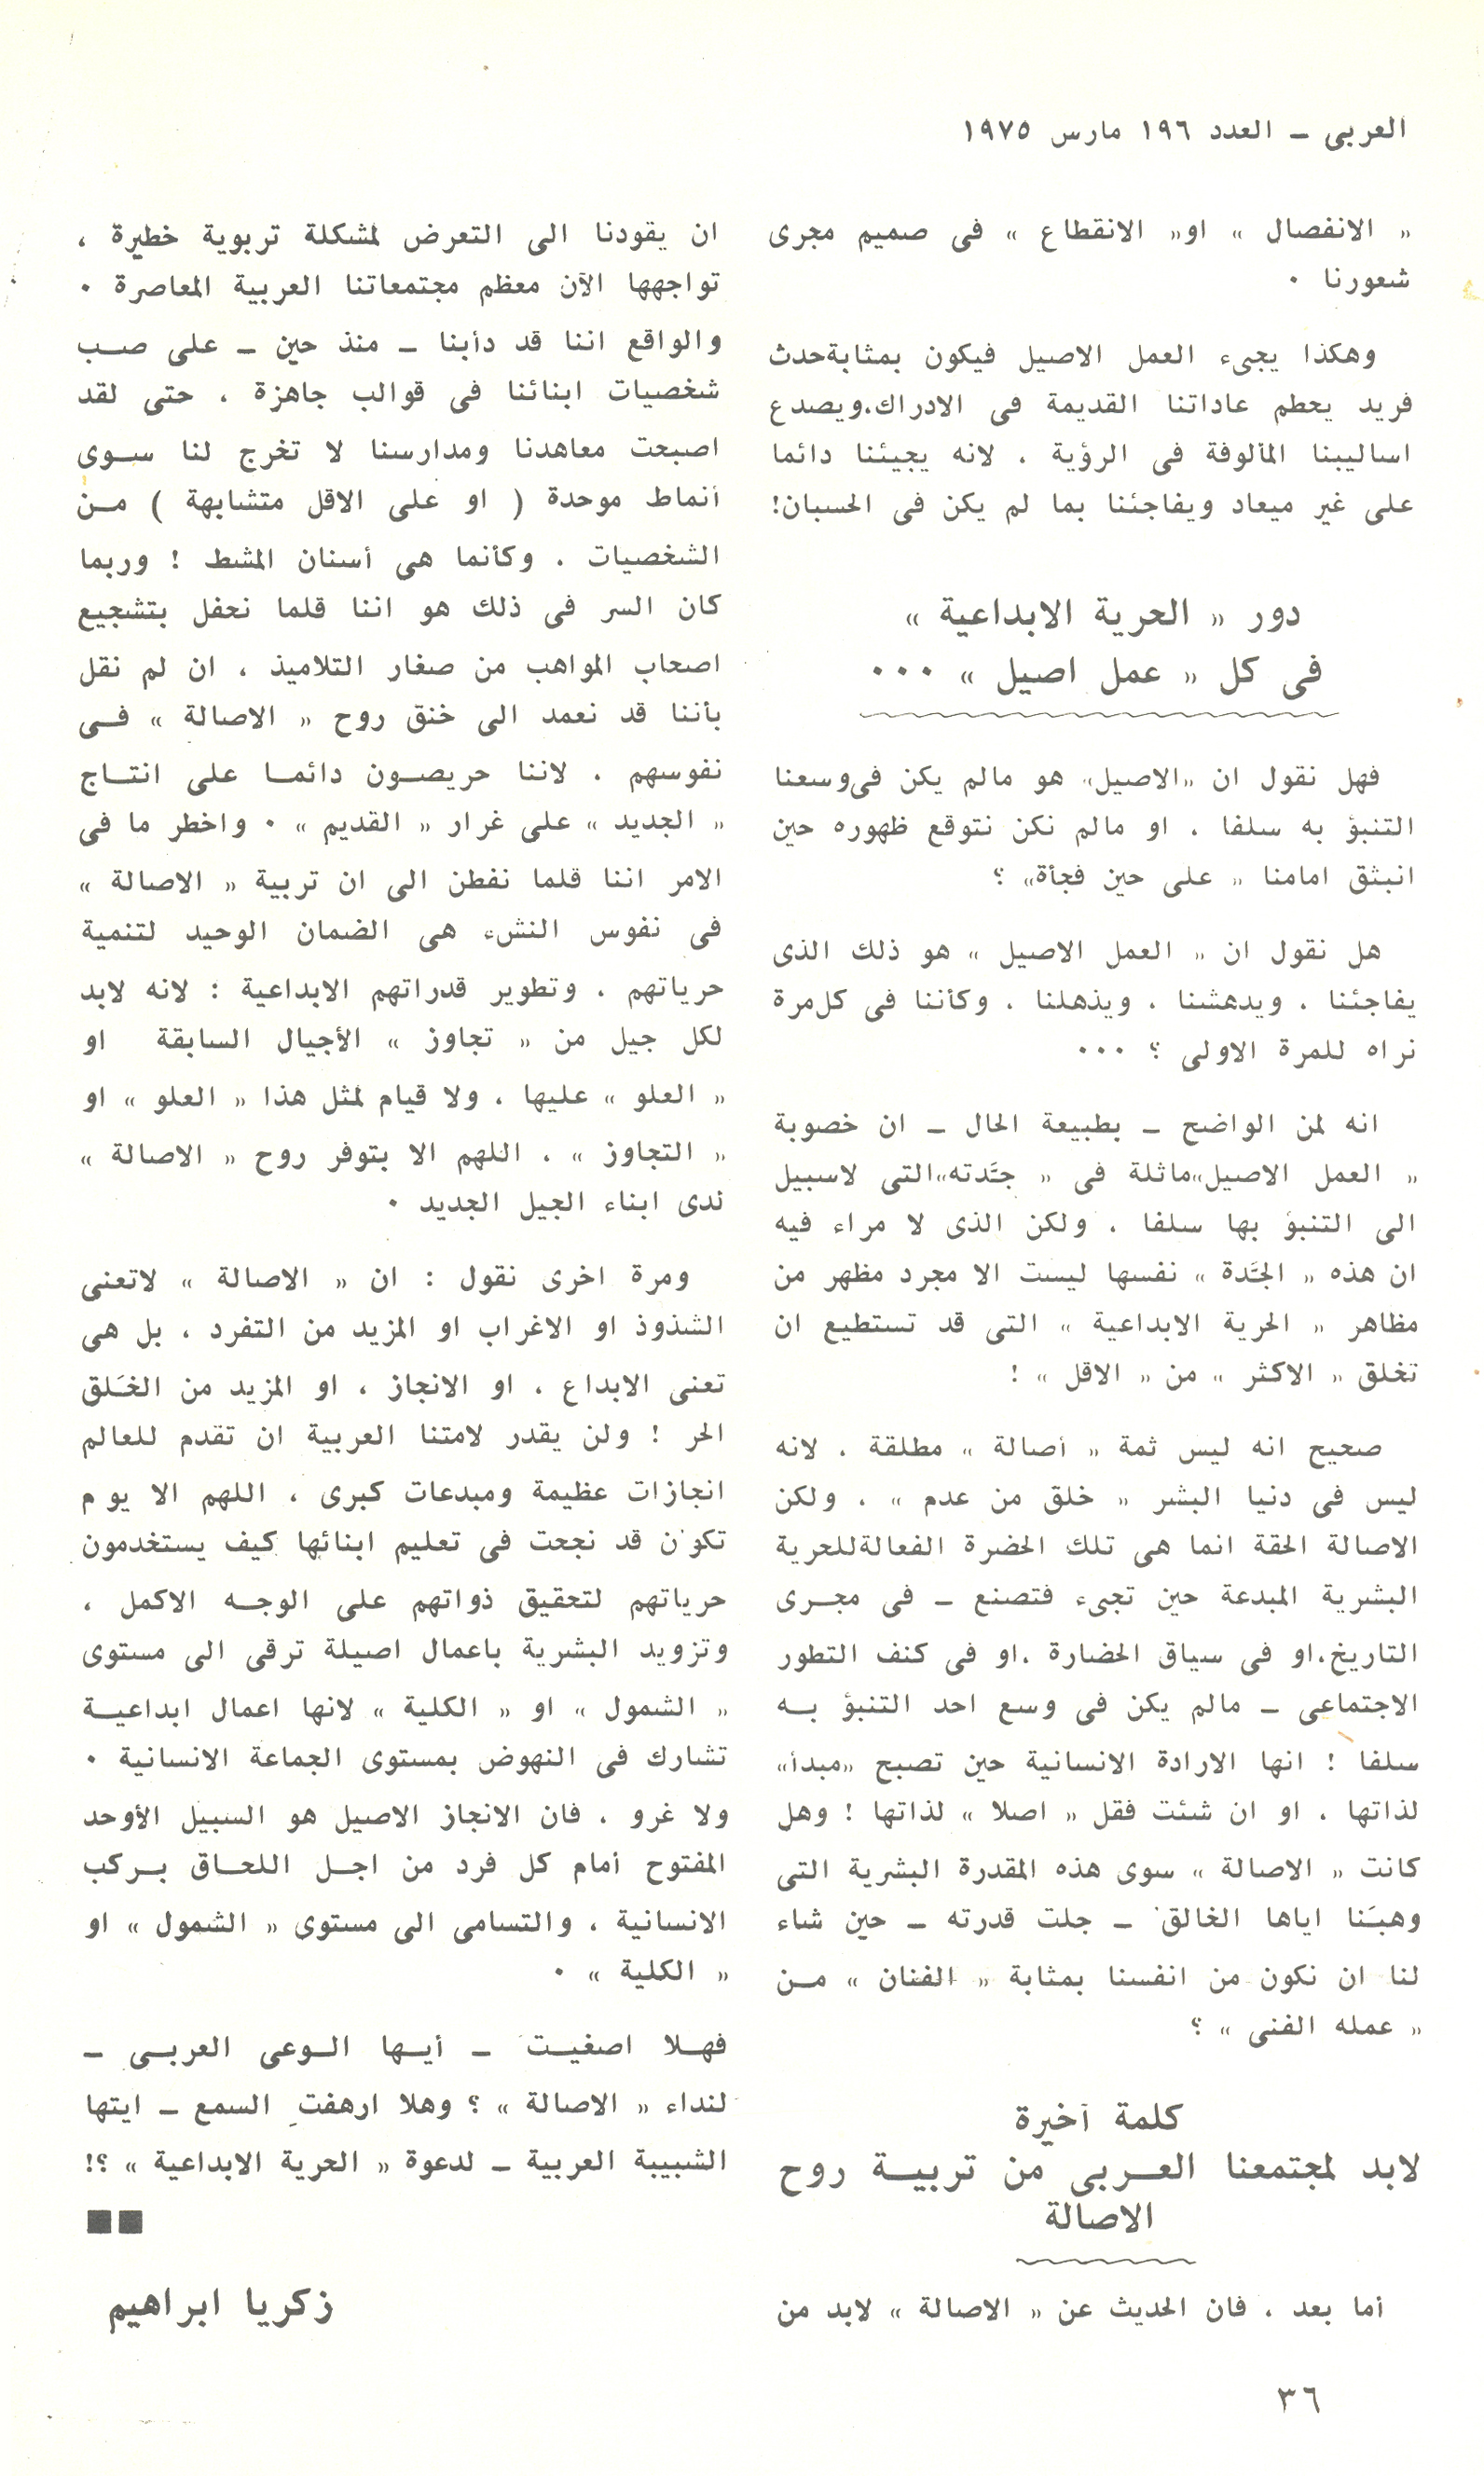 العربى – العدد ١٩٦ مارس ١٩٧٥
« الانفصال » او« الانقطاع » فى صميم مجرى
شعورنا ٠
وهكذا يجىء العمل الاصيل فيكون بمثابةحدث
فريد يحطم عاداتنا القديمة فى الادراك،ويصدع
اساليبنا المألوفة فى الرؤية ، لانه يجيئنا دائما
على غير ميعاد ويفاجئنا بما لم يكن فى الحسبان!
دور « الحرية الابداعية »
فى كل « عمل اصيل » ٠٠٠
فهل نقول ان «الاصيل» هو مالم يكن فىوسعنا
التنبؤ به سلفا ، او مالم نكن نتوقع ظهوره حين
انبثق امامنا « على حين فجأة» ؟
هل نقول ان « العمل الاصيل » هو ذلك الذى
يفاجئنا ، ويدهشنا ، ويذهلنا ، وكأننا فى كلمرة
نراه للمرة الاولى ؟ ٠٠٠
انه لمن الواضح – بطبيعة الحال – ان خصوبة
« العمل الاصيل»ماثلة فى « جدَّته»التى لاسبيل
الى التنبؤ بها سلفا ، ولكن الذى لا مراء فيه
ان هذه « الجدَّة » نفسها ليست الا مجرد مظهر من
مظاهر « الحرية الابداعية » التى قد تستطيع ان
تخلق « الاكثر » من « الاقل » !
صحيح انه ليس ثمة « أصالة » مطلقة ، لانه
ليس فى دنيا البشر « خلق من عدم » ، ولكن
الاصالة الحقة انما هى تلك الحضرة الفعالةللحرية
البشرية المبدعة حين تجىء فتصنع – فى مجرى
التاريخ،او فى سياق الحضارة ،او فى كنف التطور
الاجتماعى – مالم يكن فى وسع احد التنبؤ به
سلفا ! انها الارادة الانسانية حين تصبح «مبدأ»
لذاتها ، او ان شئت فقل « اصلا » لذاتها ! وهل
كانت « الاصالة » سوى هذه المقدرة البشرية التى
وهبَنا اياها الخالق – جلت قدرته – حين شاء
لنا ان نكون من انفسنا بمثابة « الفنان » من
« عمله الفنى » ؟
كلمة أخيرة
لابد لمجتمعنا العربى من تربية روح
الاصالة
أما بعد ، فان الحديث عن « الاصالة » لابد من
ان يقودنا الى التعرض لمشكلة تربوية خطيرة ،
تواجهها الآن معظم مجتمعاتنا العربية المعاصرة ٠
والواقع اننا قد دأبنا – منذ حين – على صب
شخصيات ابنائنا فى قوالب جاهزة ، حتى لقد
اصبحت معاهدنا ومدارسنا لا تخرج لنا سوى
أنماط موحدة ( او على الاقل متشابهة ) من
الشخصيات ، وكأنما هى أسنان المشط ! وربما
كان السر فى ذلك هو اننا قلما نحفل بتشجيع
اصحاب المواهب من صغار التلاميذ ، ان لم نقل
بأننا قد نعمد الى خنق روح « الاصالة » فى
نفوسهم ، لاننا حريصون دائما على انتاج
« الجديد » على غرار « القديم » ٠ واخطر ما فى
الامر اننا قلما نفطن الى ان تربية « الاصالة »
فى نفوس النشء هى الضمان الوحيد لتنمية
حرياتهم ، وتطوير قدراتهم الابداعية : لانه لابد
لكل جيل من « تجاوز » الأجيال السابقة او
« العلو » عليها ، ولا قيام لمثل هذا « العلو » او
« التجاوز » ، اللهم الا بتوفر روح « الاصالة »
لدى ابناء الجيل الجديد ٠
ومرة اخرى نقول : ان « الاصالة » لاتعنى
الشذوذ او الاغراب او المزيد من التفرد ، بل هى
تعنى الابداع ، او الانجاز ، او المزيد من الخَلق
الحر ! ولن يقدر لامتنا العربية ان تقدم للعالم
انجازات عظيمة ومبدعات كبرى ، اللهم الا يوم
تكون قد نجحت فى تعليم ابنائها كيف يستخدمون
حرياتهم لتحقيق ذواتهم على الوجه الاكمل ،
وتزويد البشرية باعمال اصيلة ترقى الى مستوى
« الشمول » او « الكلية » لانها اعمال ابداعية
تشارك فى النهوض بمستوى الجماعة الانسانية ٠
ولا غرو ، فان الانجاز الاصيل هو السبيل الأوحد
المفتوح أمام كل فرد من اجل اللحاق بركب
الانسانية ، والتسامى الى مستوى « الشمول » او
« الكلية » ٠
فهلا اصغيت – أيها الوعى العربى –
لنداء « الاصالة » ؟ وهلا ارهفتِ السمع – ايتها
الشبيبة العربية – لدعوة « الحرية الابداعية » ؟!
زكريا ابراهيم
٣٦